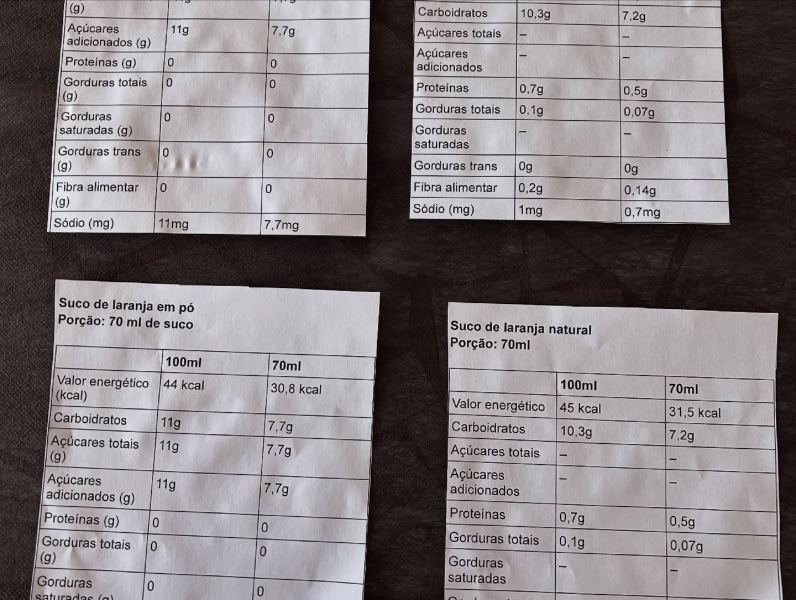 (g)
Açúcares 11g 7,7g
adicionados (g)
Proteínas (g) 0 0
Gorduras totais 0 0
(g)
Gorduras 0 0
saturadas (g)
Gorduras trans 0 0
(g)
Fibra alimentar 0 0
(g)
Sódio (mg) 11mg 7,7mg
Carboidratos 10,3g 7,2g
Açúcares totais – –
Açúcares – –
adicionados
Proteínas 0,7g 0,5g
Gorduras totais 0,1g 0,07g
Gorduras – –
saturadas
Gorduras trans 0g 0g
Fibra alimentar 0,2g 0,14g
Sódio (mg) 1mg 0,7mg
Suco de laranja em pó
Porção: 70 ml de suco
100ml 70ml
Valor energético 44 kcal 30,8 kcal
(kcal)
Carboidratos 11g 7,7g
Açúcares totais 11g 7,7g
(g)
Açúcares 11g 7,7g
adicionados (g)
Proteínas (g) 0 0
Gorduras totais 0 0
(g)
Gorduras 0 0
saturadas (g)
Suco de laranja natural
Porção: 70ml
100ml 70ml
Valor energético 45 kcal 31,5 kcal
Carboidratos 10,3g 7,2g
Açúcares totais – –
Açúcares – –
adicionados
Proteínas 0,7g 0,5g
Gorduras totais 0,1g 0,07g
Gorduras – –
saturadas